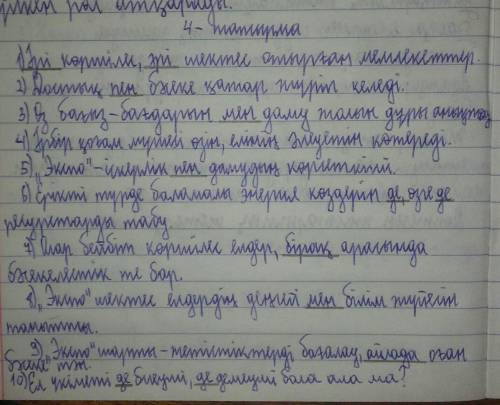 рөл атқарады.
4-тапсырма
1) Әрі көршілес, әрі шектес отырған мемлекеттер.
2) Достық пен бәсеке қатар жүріп келеді.
3) Өз бағыт-бағдарын мен даму жолын дұрыс анықтау
4) Әрбір қоғам мүшесі өзін, елінің әлеуетін көтереді.
5) „Экспо"-іскерлік пен дамудың көрсеткіші.
6) Ерікті түрде баламалы энергия көздерін де, өзге де
ресурстарды табу
7) Олар бейбіт көршілес елдер, бірақ арасында
бәсекелестік те бар.
8) „Экспо" шектес елдердің деңгейі мен білім жүйесін
таматты.
9) „Экспо" шарты-жетістіктерді бағалау, ойлада оған
бәсеке
10) Ел үкіметі де биеуші, де демеуші бола ала ма?